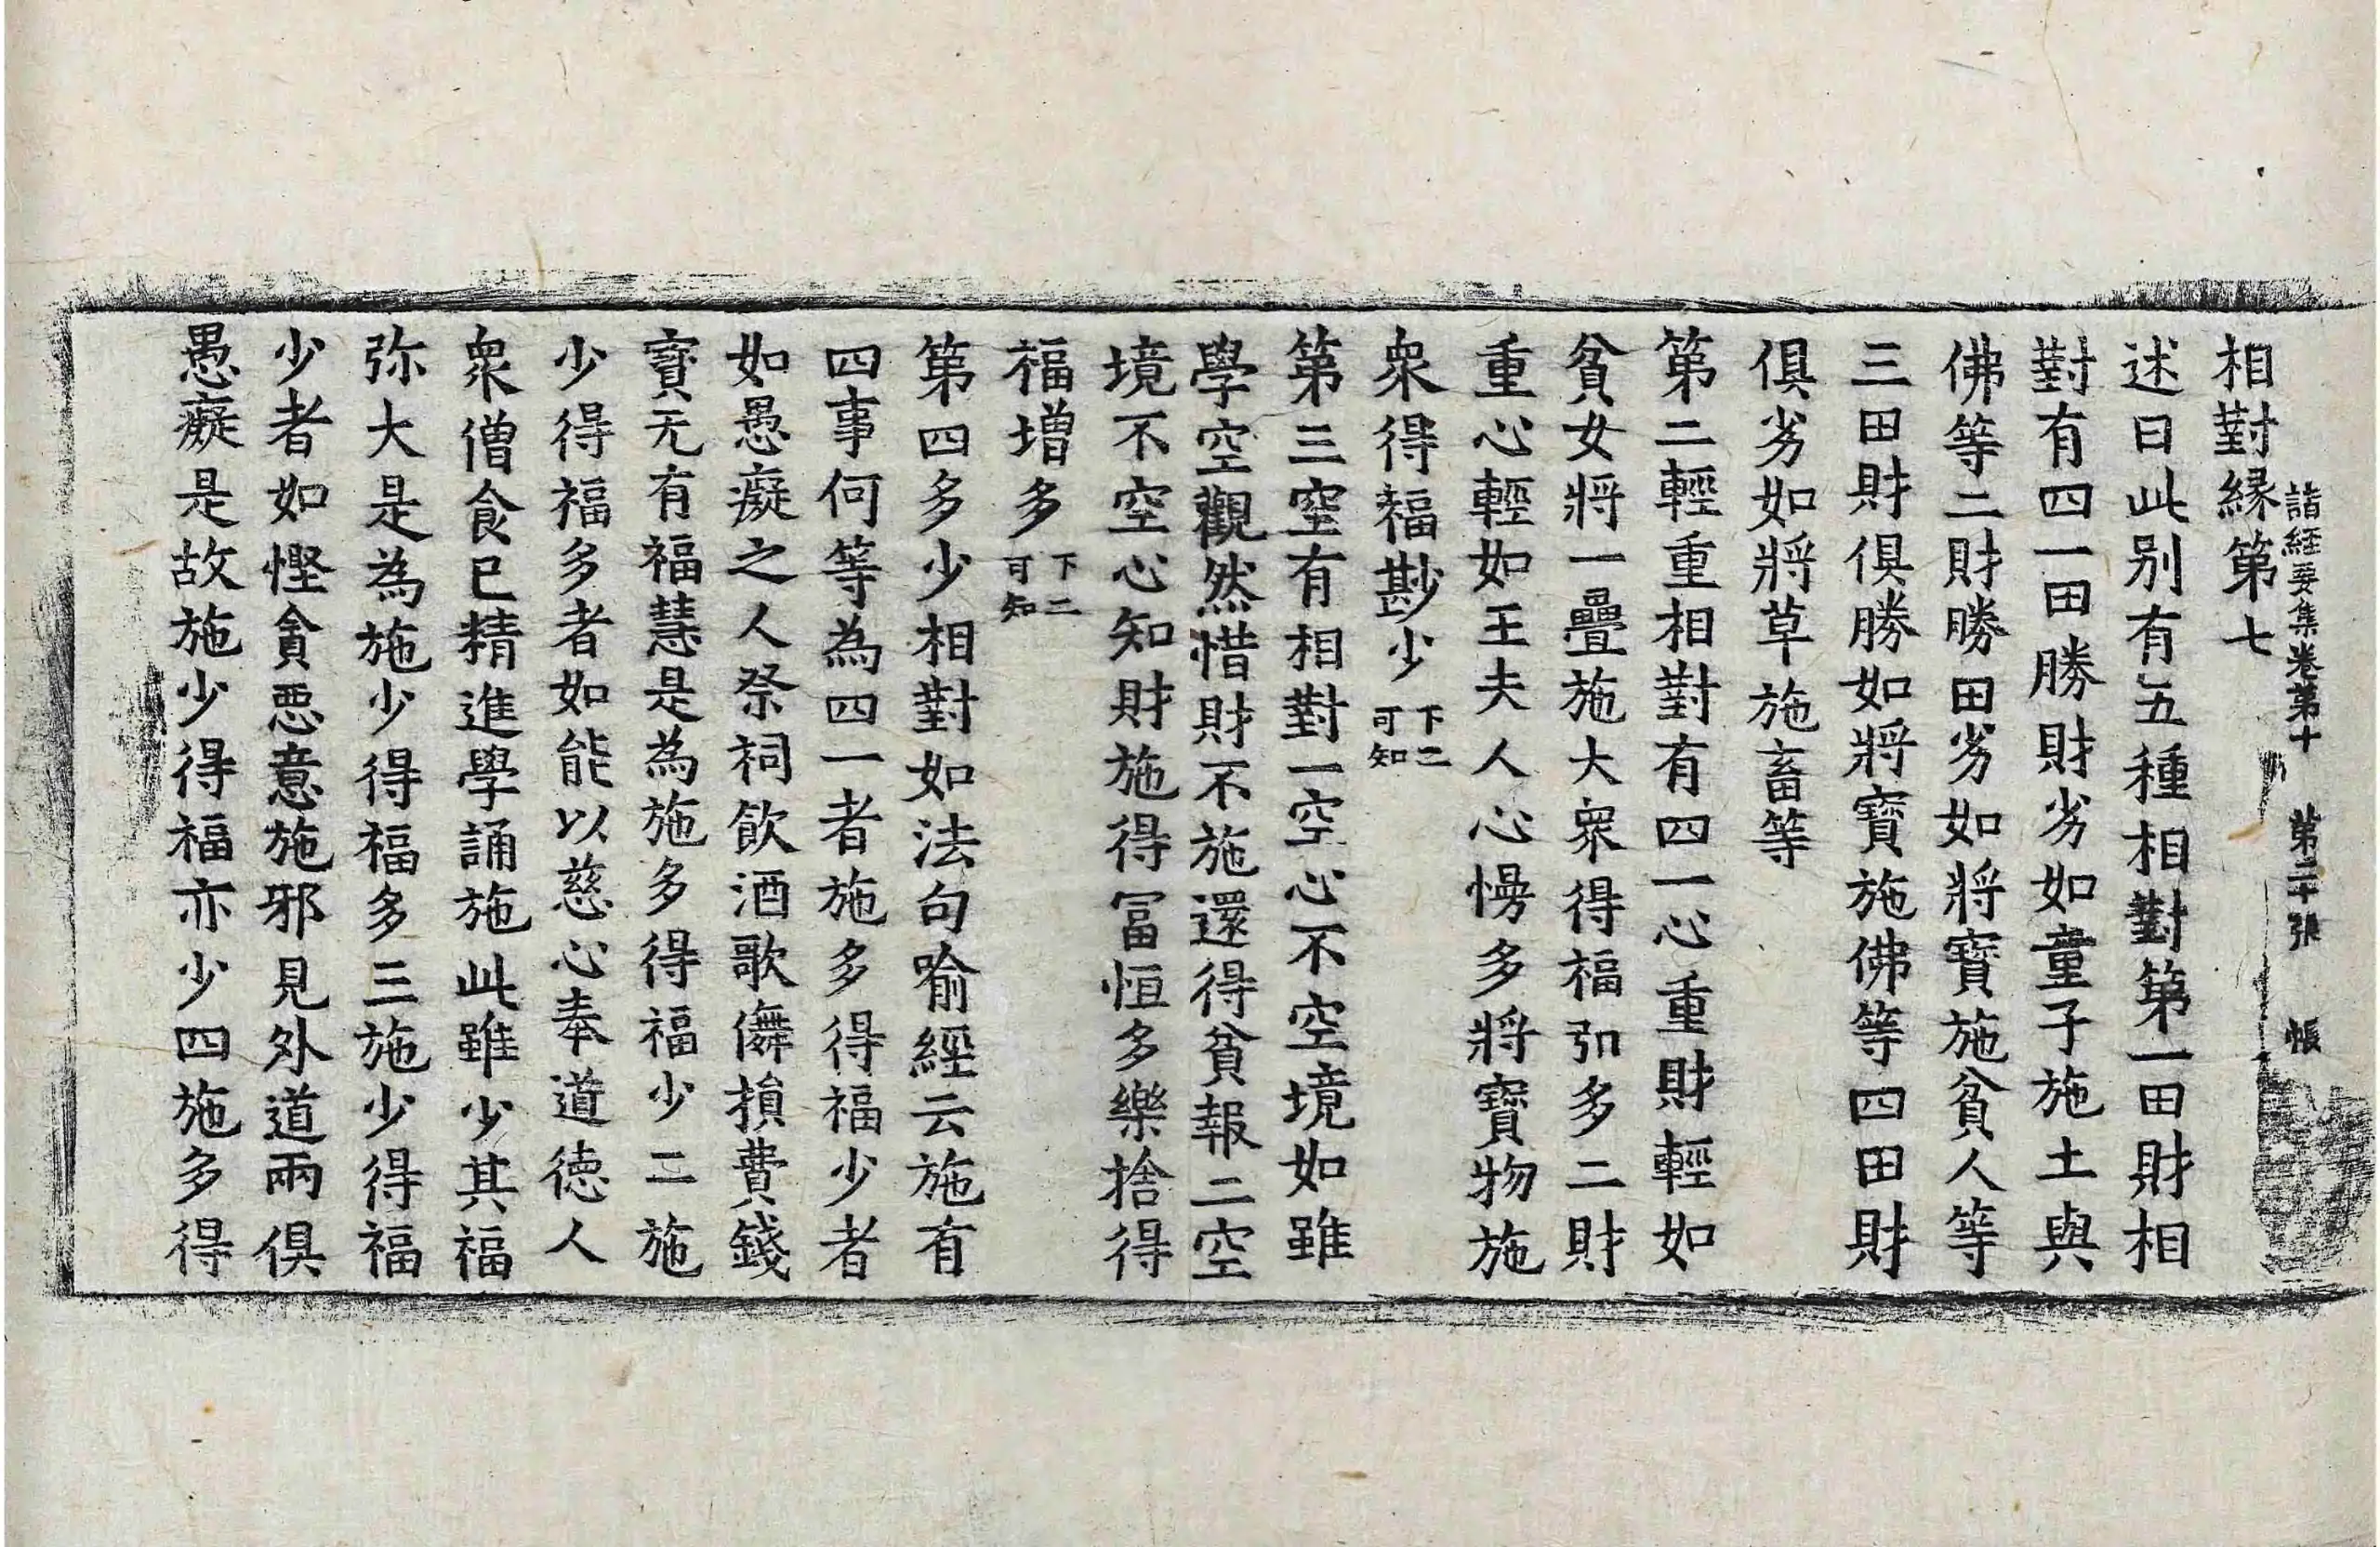 諸經要集卷第十 第二十張 帳
相對緣第七
述曰此別有五種相對第一田財相
對有四一田勝財劣如童子施土與
佛等二財勝田劣如將寶施貧人等
三田財俱勝如將寶施佛等四田財
俱劣如將草施畜等
第二輕重相對有四一心重財輕如
貧女將一疊施大眾得福弘多二財
重心輕如王夫人心慢多將寶物施
眾得福尠少下二可知
第三空有相對一空心不空境如雖
學空觀然惜財不施還得貧報二空
境不空心知財施得冨恒多樂捨得
福增多下二可知
第四多少相對如法句喻經云施有
四事何等為四一者施多得福少者
如愚癡之人祭祠飲酒歌儛損費錢
寶无有福慧是為施多得福少二施
少得福多者如能以慈心奉道德人
眾僧食已精進學誦施此雖少其福
弥大是為施少得福多三施少得福
少者如慳貪惡意施邪見外道兩俱
愚癡是故施少得福亦少四施多得